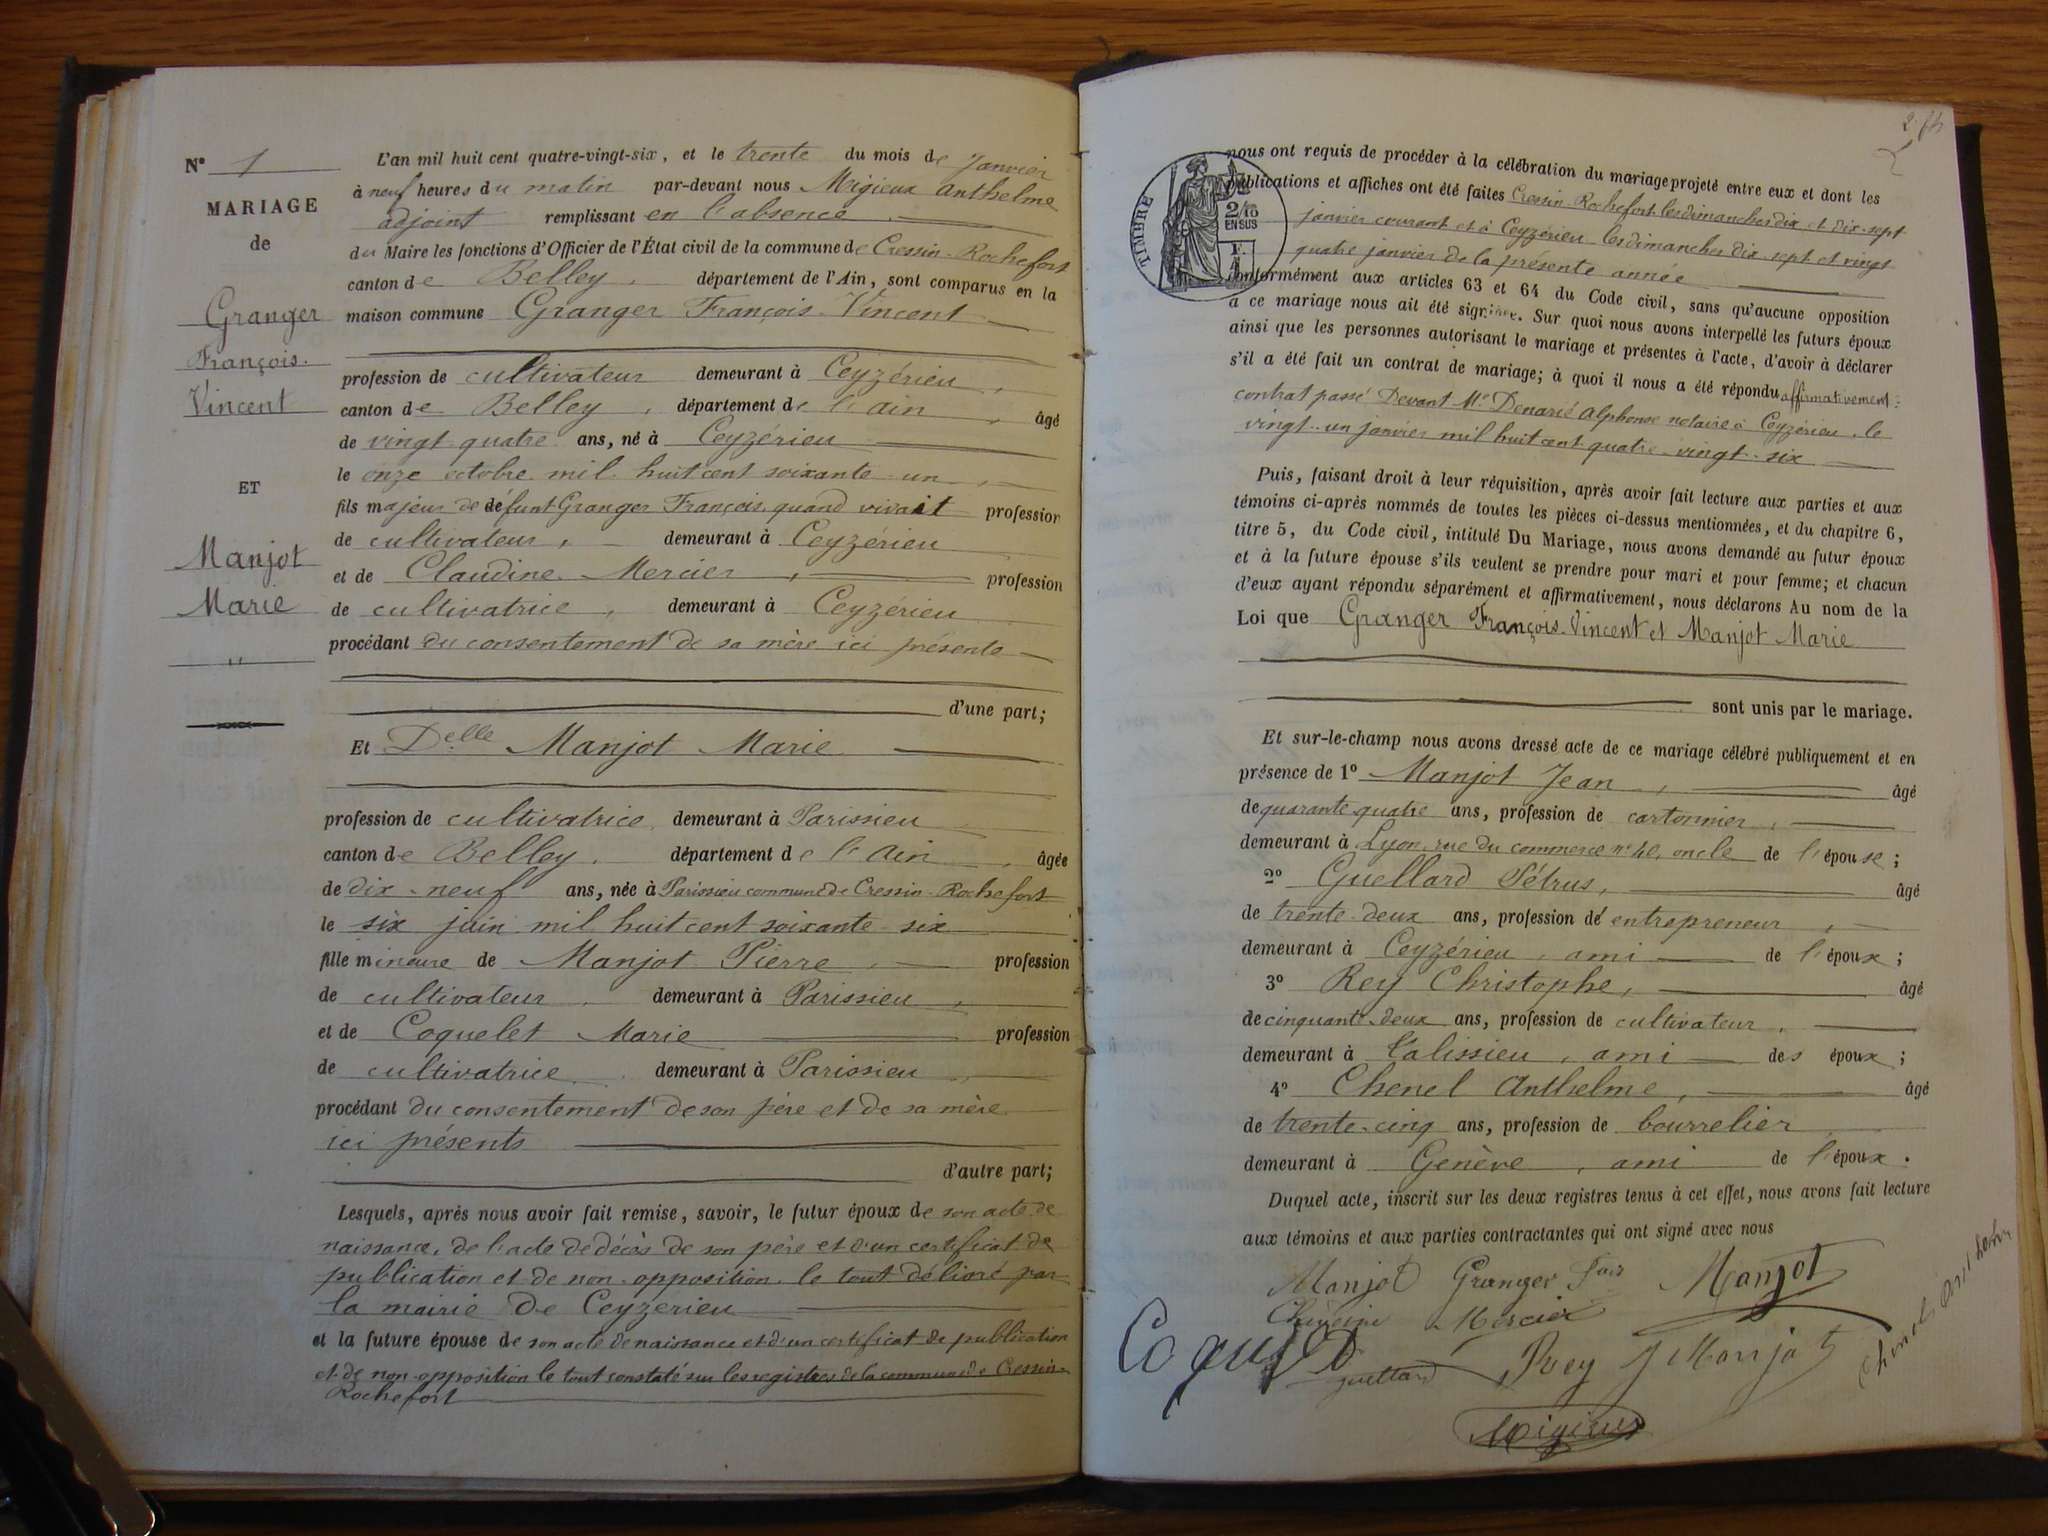 N° 1
MARIAGE
de
Granger
François.
Vincent
ET
Manjot
Marie
"
L'an mil huit cent quatre-vingt-six, et le trente du mois de Janvier
à neuf heures du matin par-devant nous Migieux Anthelme
adjoint remplissant en l'absence
du Maire les fonctions d'Officier de l'État civil de la commune de Cressin-Rochefort
canton de Belley, département de l'Ain, sont comparus en la
maison commune Granger François-Vincent
profession de cultivateur demeurant à Ceyzérieu,
canton de Belley, département de l'ain, âgé
de vingt quatre ans, né à Ceyzérieu
le onze octobre mil huit cent soixante-un,
fils majeur de défunt Granger François, quand vivait profession
de cultivateur, demeurant à Ceyzérieu
et de Claudine Mercier, profession
de cultivatrice, demeurant à Ceyzérieu
procédant du consentement de sa mère ici présente
d'une part;
Et Delle Manjot Marie
profession de cultivatrice demeurant à Parissieu
canton de Belley, département de l'Ain, âgée
de dix-neuf ans, née à Parissieu commune de Cressin-Rochefort
le six juin mil huit cent soixante-six
fille mineure de Manjot Pierre, profession
de cultivateur demeurant à Parissieu,
et de Coquelet Marie profession
de cultivatrice demeurant à Parissieu,
procédant du consentement de son père et de sa mère
ici présents
d'autre part;
Lesquels, après nous avoir fait remise, savoir, le futur époux de son acte de
naissance, de l'acte de décès de son père et d'un certificat de
publication et de non-opposition, le tout délivré par
la mairie de Ceyzerieu
et la future épouse de son acte de naissance et d'un certificat de publication
et de non-opposition le tout constaté sur les registres de la commune de Cressin-
Rochefort
2
TIMBRE
2/10
EN SUS
nous ont requis de procéder à la célébration du mariage projeté entre eux et dont les
publications et affiches ont été faites Cressin-Rochefort les dimanches dix et dix-sept
janvier courant et à Ceyzérieu les dimanches dix-sept et vingt
quatre janvier de la présente année
conformément aux articles 63 et 64 du Code civil, sans qu'aucune opposition
à ce mariage nous ait été signifiée. Sur quoi nous avons interpellé les futurs époux
ainsi que les personnes autorisant le mariage et présentes à l'acte, d'avoir à déclarer
s'il a été fait un contrat de mariage; à quoi il nous a été répondu affirmativement:
contrat passé Devant Me Denarié Alphonse notaire à Ceyzérieu, le
vingt-un janvier mil huit cent quatre-vingt-six
Puis, faisant droit à leur réquisition, après avoir fait lecture aux parties et aux
témoins ci-après nommés de toutes les pièces ci-dessus mentionnées, et du chapitre 6,
titre 5, du Code civil, intitulé Du Mariage, nous avons demandé au futur époux
et à la future épouse s'ils veulent se prendre pour mari et pour femme; et chacun
d'eux ayant répondu séparément et affirmativement, nous déclarons Au nom de la
Loi que Granger François-Vincent et Manjot Marie
sont unis par le mariage.
Et sur-le-champ nous avons dressé acte de ce mariage célébré publiquement et en
présence de 1° Manjot Jean, âgé
de quarante quatre ans, profession de cartonnier,
demeurant à Lyon, rue du commerce n° 40, oncle de l'épouse;
2° Guellard Pétrus, âgé
de trente-deux ans, profession dé entrepreneur,
demeurant à Ceyzérieu, ami de l'époux;
3° Rey Christophe, âgé
de cinquante-deux ans, profession de cultivateur,
demeurant à Talissieu, ami des époux;
4° Chenel Anthelme, âgé
de trente-cinq ans, profession de bourrelier
demeurant à Genève, ami de l'époux.
Duquel acte, inscrit sur les deux registres tenus à cet effet, nous avons fait lecture
aux témoins et aux parties contractantes qui ont signé avec nous
Manjot Granger Fois Manjot
Mercier
Guellard Rey J Manjot Chenel Anthelme
Migieux